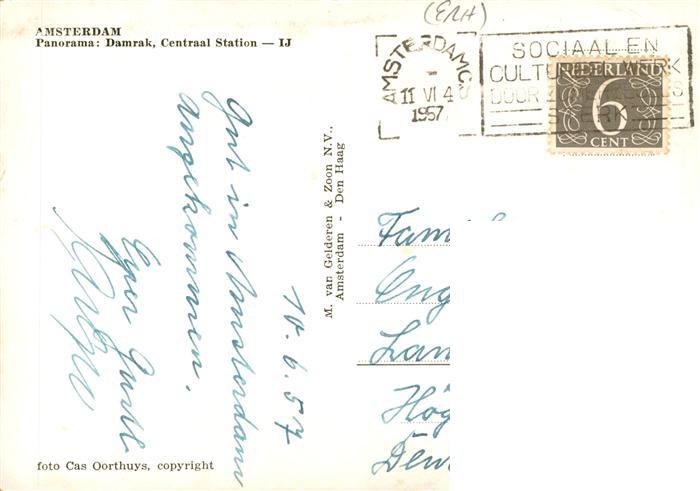 AMSTERDAM
Panorama: Damrak, Centraal Station — IJ
(ERH)
AMSTERDAM CS
11 VI 4
1957
SOCIAAL EN
CULTUREEL WERK
DOOR
NEDERLAND
6
CENT
10.6.57
Gut in Amsterdam
angekommen.
M. van Gelderen & Zoon N.V.,
Amsterdam - Den Haag
Fam
Eng
Lan
Hög
foto Cas Oorthuys, copyright